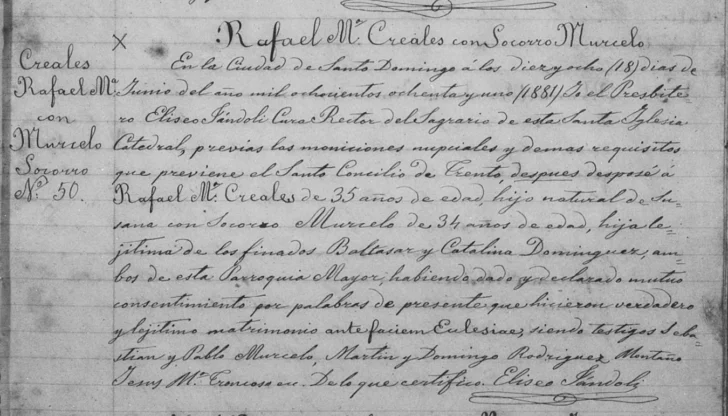 Rafael Mª. Creales con Socorro Murcelo
Creales
Rafael Mª
con
Murcelo
Socorro
Nº. 50.
X
En la Ciudad de Santo Domingo á los diez y ocho (18) dias de
Junio del año mil ochocientos ochenta y uno (1881) Yo el Presbite
ro Eliseo Jándoli Cura Rector del Sagrario de esta Santa Iglesia
Catedral, previas las moniciones nupciales y demas requisitos
que previene el Santo Concilio de Trento, despues desposé á
Rafael Mª. Creales de 35 años de edad, hijo natural de Su-
sana con Socorro Murcelo de 34 años de edad, hija le-
jitima de los finados Baltasar y Catalina Dominguez, am-
bos de esta Parroquia Mayor, habiendo dado y declarado mutuo
consentimiento por palabras de presente que hicieron verdadero
y lejitimo matrimonio ante faciem Eclesiae, siendo testigos Seba-
stian y Pablo Murcelo, Martin y Domingo Rodriguez Montaño
Jesus Mª Troncoso etc. De lo que certifico. Eliseo Jándoli